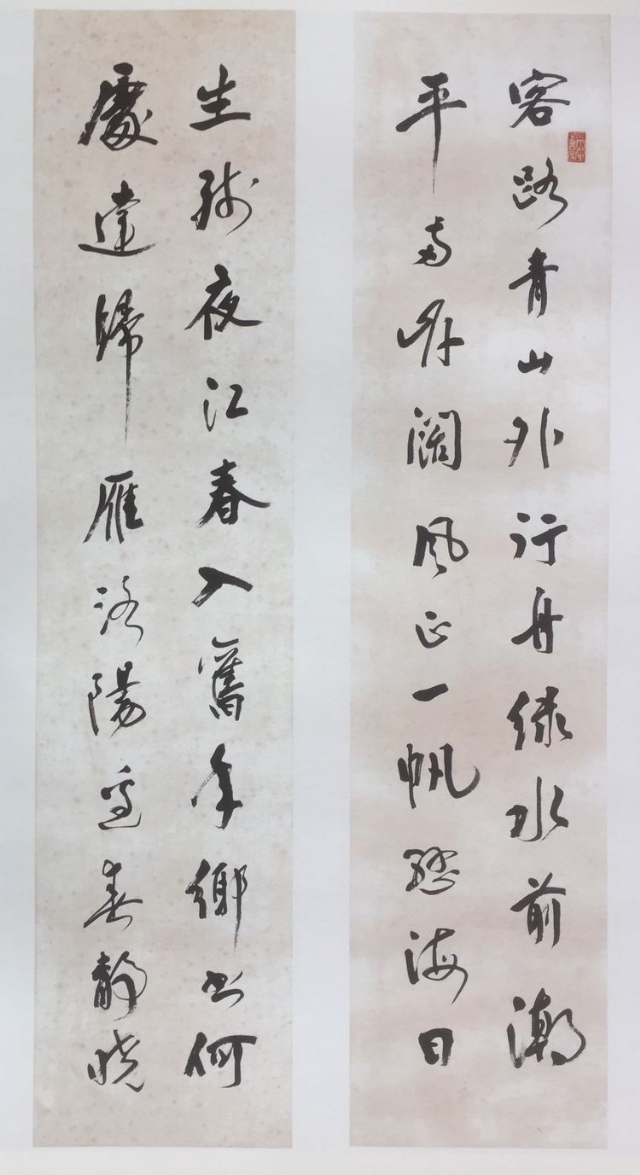 客路青山外行舟綠水前潮
平兩岸闊風正一帆懸海日
生殘夜江春入舊年鄉書何
處達歸雁洛陽邊春靜曉